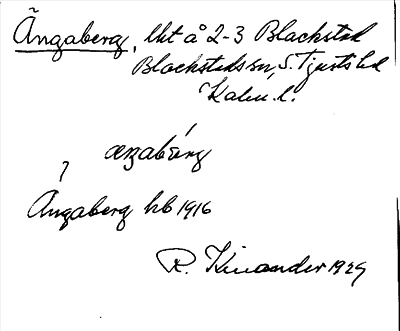 Ängaberg, lht å 2-3 Blackstad
Blackstads sn, S. Tjusts hd
Kalm. l.
æŋabærg
Ängaberg hb 1916
R. Kinander 1929